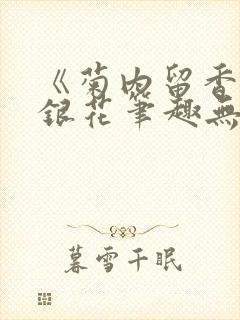 《菊内留香
銀花筆趣無
暮雪千眠